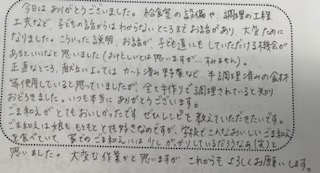 今日はありがとうございました。給食室の設備や、調理の工程
上夫など、子どもの話からはわからないところまでお話があり、大変ために
なりました。こういった説明、お話が子ども達にもしていただける機会が
あるといいなと思いました(おいそがしいとは思いますが…すみません)。
正直なところ、献立によってはカット済み野菜など、半調理済みの食材
等使用していると思っていましたが、全て手作りで調理されていると知り
おどろきました。いつも本当にありがとうございます。
ごま和えがとてもおいしかったです ぜひレシピを教えていただきたいです。
ごま和えは娘ももともと大好きなのですが、学校でこんなおいしいごま和え
を食べていて、家でのごま和えには少しがっかりしているだろうなぁ(笑)と
思いました。大変な作業かと思いますが これからもよろしくお願いします。